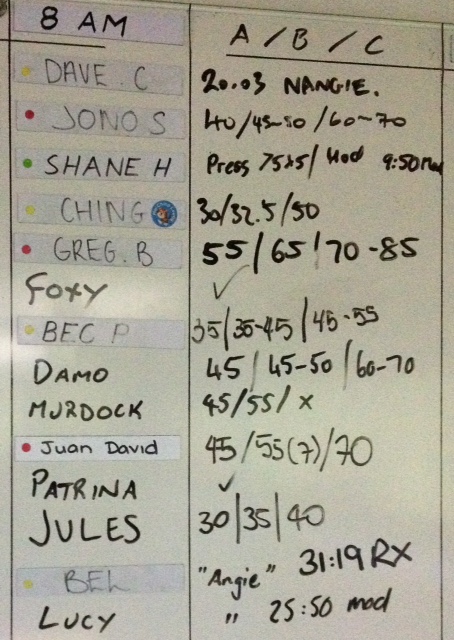 8 AM A / B / C
DAVE. C 20.03 NANGIE.
JONO S 40/45-50/60-70
SHANE H Press 75x5/ Mod 9:50
CHING 30/32.5/50
GREG. B 55/65/70-85
FOXY ✓
BEC P 35/35-45/45-55
DAMO 45/45-50/60-70
MURDOCK 45/55/x
Juan David 45/55(7)/70
PATRINA ✓
JULES 30/35/40
BEL "Angie" 31:19 RX
LUCY " 25:50 mod